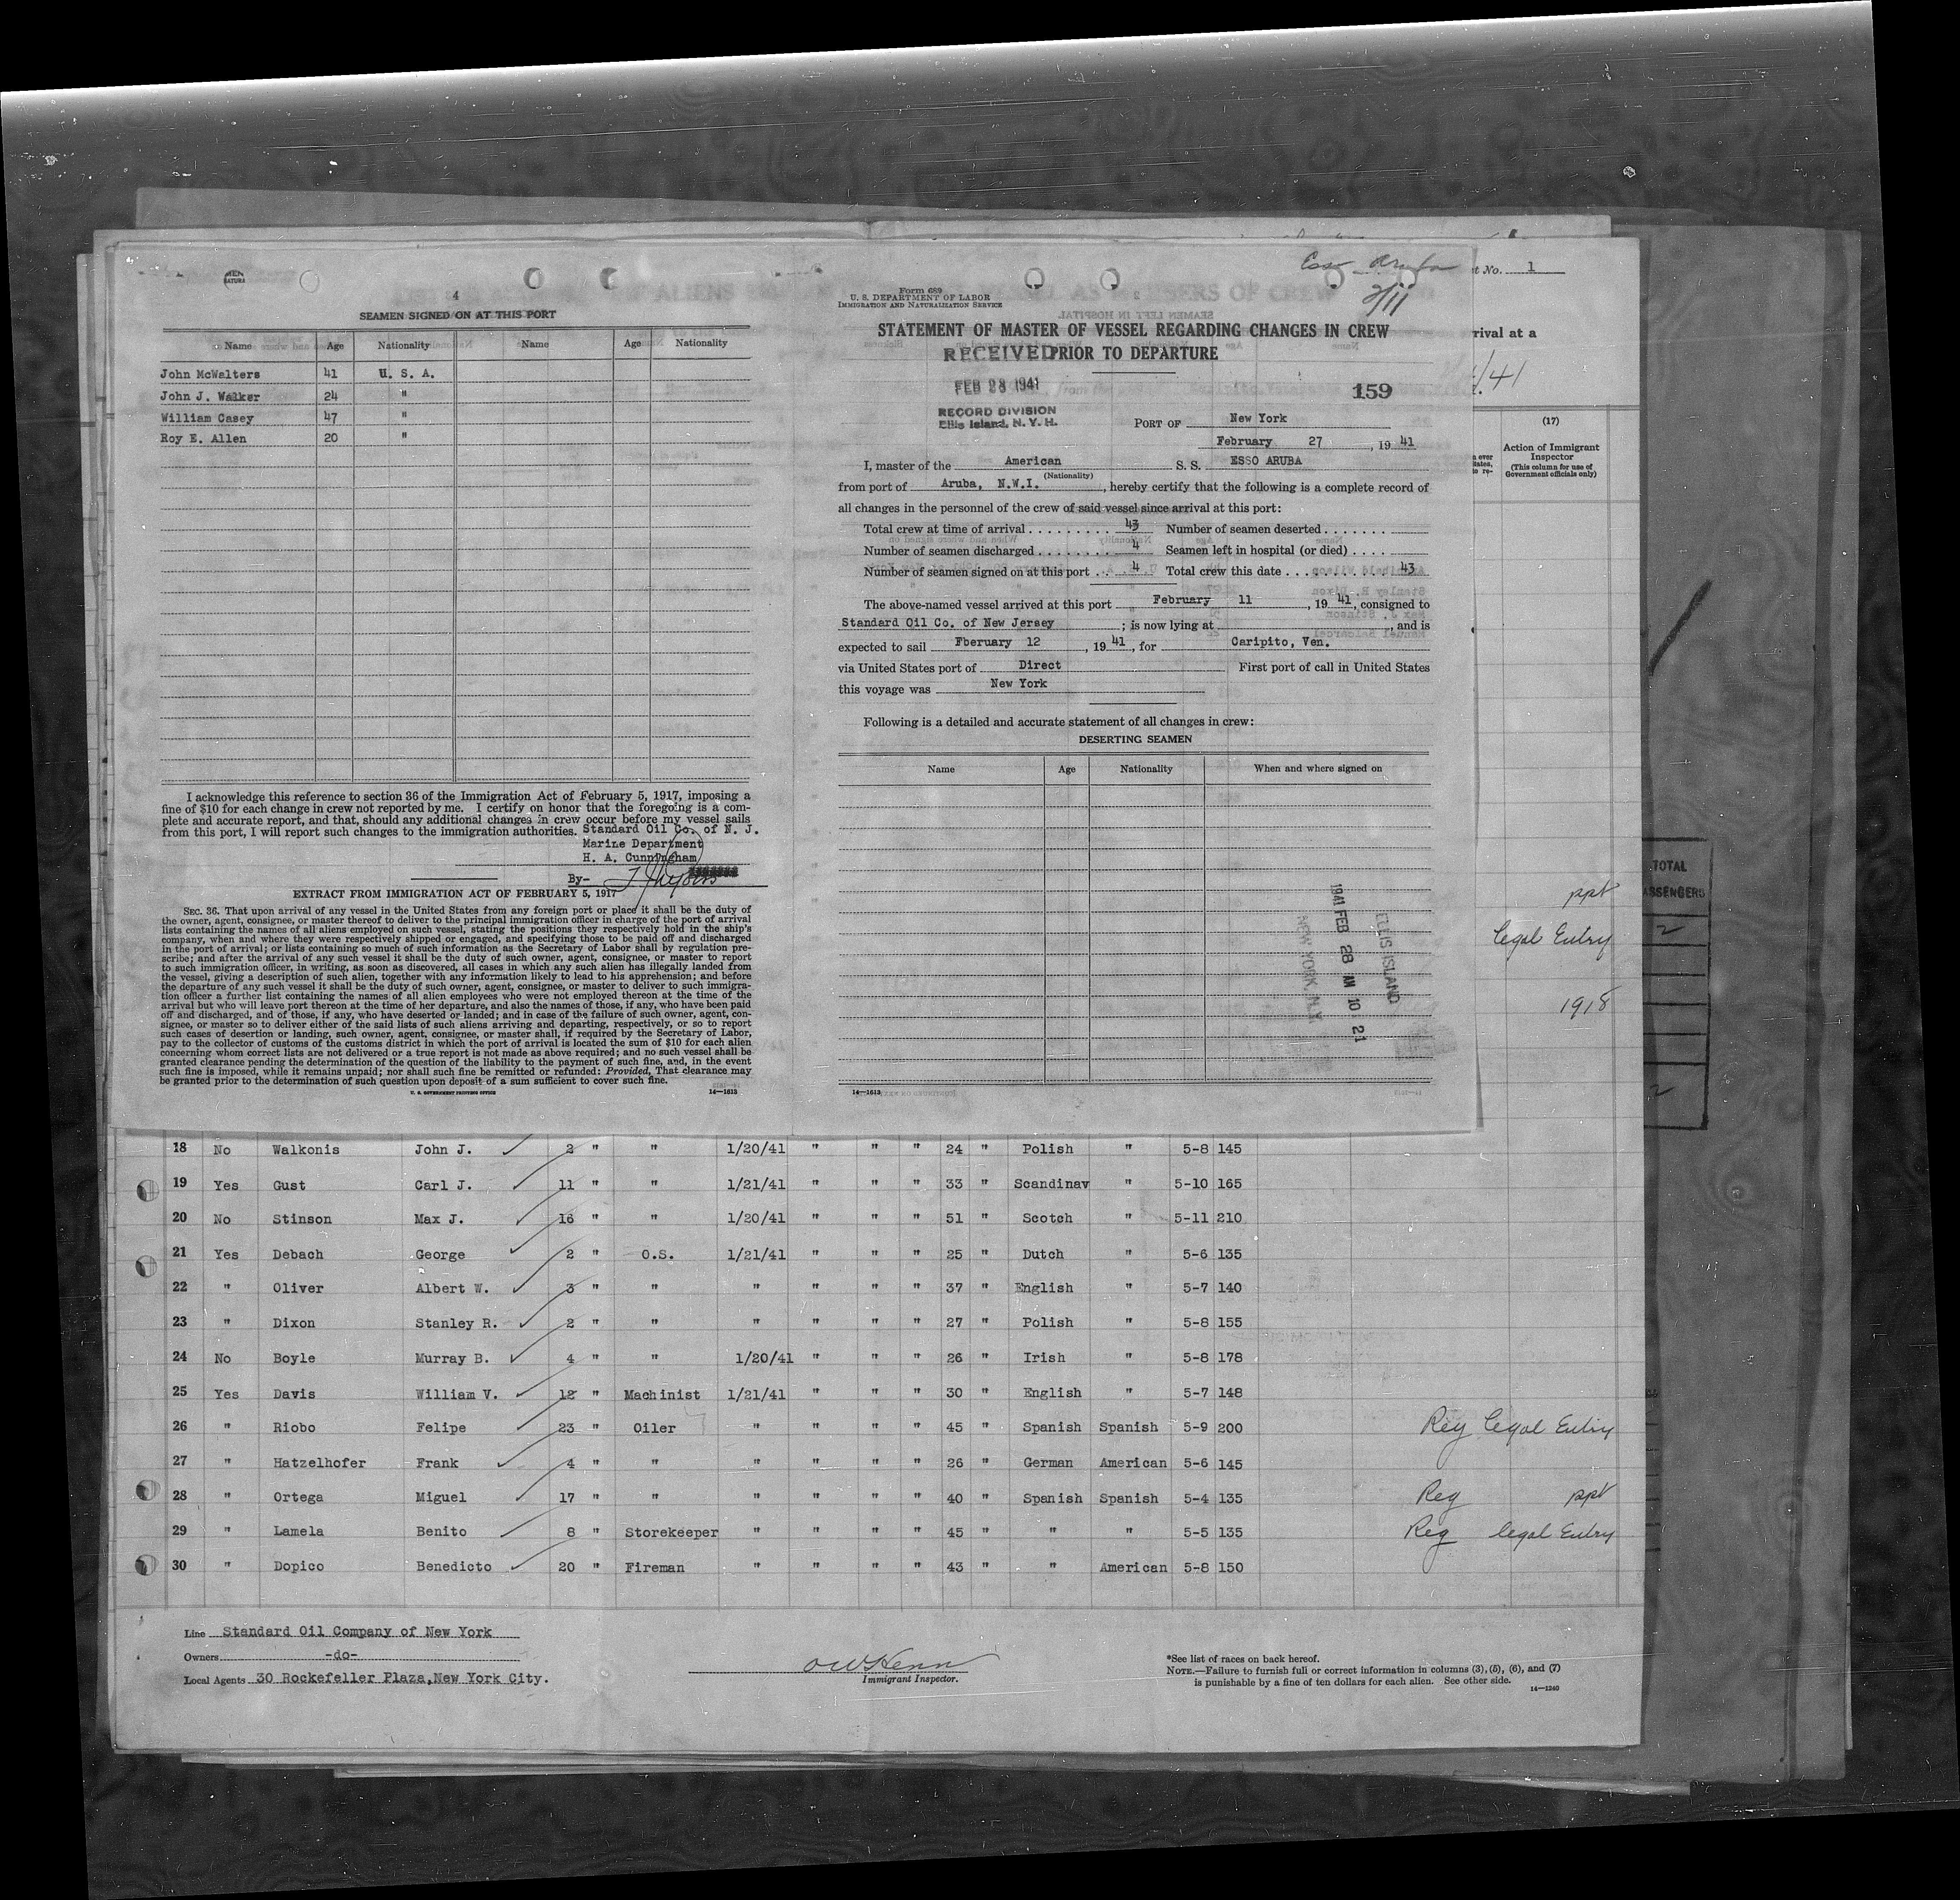 4
SEAMEN SIGNED ON AT THIS PORT
Name Age Nationality Name Age Nationality
John McWalters 41 U. S. A.
John J. Walker 24 "
William Casey 47 "
Roy E. Allen 20 "
I acknowledge this reference to section 36 of the Immigration Act of February 5, 1917, imposing a
fine of $10 for each change in crew not reported by me. I certify on honor that the foregoing is a com-
plete and accurate report, and that, should any additional changes in crew occur before my vessel sails
from this port, I will report such changes to the immigration authorities. Standard Oil Co. of N. J.
Marine Department
H. A. Cunningham
By-
EXTRACT FROM IMMIGRATION ACT OF FEBRUARY 5, 1917
SEC. 36. That upon arrival of any vessel in the United States from any foreign port or place it shall be the duty of
the owner, agent, consignee, or master thereof to deliver to the principal immigration officer in charge of the port of arrival
lists containing the names of all aliens employed on such vessel, stating the positions they respectively hold in the ship's
company, when and where they were respectively shipped or engaged, and specifying those to be paid off and discharged
in the port of arrival; or lists containing so much of such information as the Secretary of Labor shall by regulation pre-
scribe; and after the arrival of any such vessel it shall be the duty of such owner, agent, consignee, or master to report
to such immigration officer, in writing, as soon as discovered, all cases in which any such alien has illegally landed from
the vessel, giving a description of such alien, together with any information likely to lead to his apprehension; and before
the departure of any such vessel it shall be the duty of such owner, agent, consignee, or master to deliver to such immigra-
tion officer a further list containing the names of all alien employees who were not employed thereon at the time of the
arrival but who will leave port thereon at the time of her departure, and also the names of those, if any, who have been paid
off and discharged, and of those, if any, who have deserted or landed; and in case of the failure of such owner, agent, con-
signee, or master so to deliver either of the said lists of such aliens arriving and departing, respectively, or so to report
such cases of desertion or landing, such owner, agent, consignee, or master shall, if required by the Secretary of Labor,
pay to the collector of customs of the customs district in which the port of arrival is located the sum of $10 for each alien
concerning whom correct lists are not delivered or a true report is not made as above required; and no such vessel shall be
granted clearance pending the determination of the question of the liability to the payment of such fine, and, in the event
such fine is imposed, while it remains unpaid; nor shall such fine be remitted or refunded: Provided, That clearance may
be granted prior to the determination of such question upon deposit of a sum sufficient to cover such fine.
U. S. GOVERNMENT PRINTING OFFICE 14—1613
Esso Aruba
2/11
Form 689
U. S. DEPARTMENT OF LABOR
IMMIGRATION AND NATURALIZATION SERVICE
STATEMENT OF MASTER OF VESSEL REGARDING CHANGES IN CREW
PRIOR TO DEPARTURE
RECEIVED
FEB 28 1941
RECORD DIVISION
Ellis Island, N. Y. H.
159
PORT OF New York
February 27, 19 41
I, master of the American S. S. ESSO ARUBA
(Nationality)
from port of Aruba, N.W.I., hereby certify that the following is a complete record of
all changes in the personnel of the crew of said vessel since arrival at this port:
Total crew at time of arrival 43 Number of seamen deserted
Number of seamen discharged 4 Seamen left in hospital (or died)
Number of seamen signed on at this port 4 Total crew this date 43
The above-named vessel arrived at this port February 11, 19 41, consigned to
Standard Oil Co. of New Jersey; is now lying at , and is
expected to sail Fberuary 12, 19 41, for Caripito, Ven.
via United States port of Direct First port of call in United States
this voyage was New York
Following is a detailed and accurate statement of all changes in crew:
DESERTING SEAMEN
Name Age Nationality When and where signed on
ELLIS ISLAND
1941 FEB 28 AM 10 21
NEW YORK, N.Y.
14—1613
t No. 1
rival at a
/41
(17)
Action of Immigrant
Inspector
(This column for use of
Government officials only)
ppt
legal Entry
1918
TOTAL
ASSENGERS
2
2
18 No Walkonis John J. 2 " " 1/20/41 " " " 24 " Polish " 5-8 145
19 Yes Gust Carl J. 11 " " 1/21/41 " " " 33 " Scandinav " 5-10 165
20 No Stinson Max J. 16 " " 1/20/41 " " " 51 " Scotch " 5-11 210
21 Yes Debach George 2 " O.S. 1/21/41 " " " 25 " Dutch " 5-6 135
22 " Oliver Albert W. 3 " " " " " " 37 " English " 5-7 140
23 " Dixon Stanley R. 2 " " " " " " 27 " Polish " 5-8 155
24 No Boyle Murray B. 4 " " 1/20/41 " " " 26 " Irish " 5-8 178
25 Yes Davis William V. 12 " Machinist 1/21/41 " " " 30 " English " 5-7 148
26 " Riobo Felipe 23 " Oiler " " " " 45 " Spanish Spanish 5-9 200 Reg legal Entry
27 " Hatzelhofer Frank 4 " " " " " " 26 " German American 5-6 145
28 " Ortega Miguel 17 " " " " " " 40 " Spanish Spanish 5-4 135 Reg ppt
29 " Lamela Benito 8 " Storekeeper " " " " 45 " " " 5-5 135 Reg legal Entry
30 " Dopico Benedicto 20 " Fireman " " " " 43 " " American 5-8 150
Line Standard Oil Company of New York
Owners -do-
Local Agents 30 Rockefeller Plaza, New York City.
Immigrant Inspector.
*See list of races on back hereof.
NOTE.—Failure to furnish full or correct information in columns (3), (5), (6), and (7)
is punishable by a fine of ten dollars for each alien. See other side.
14—1240